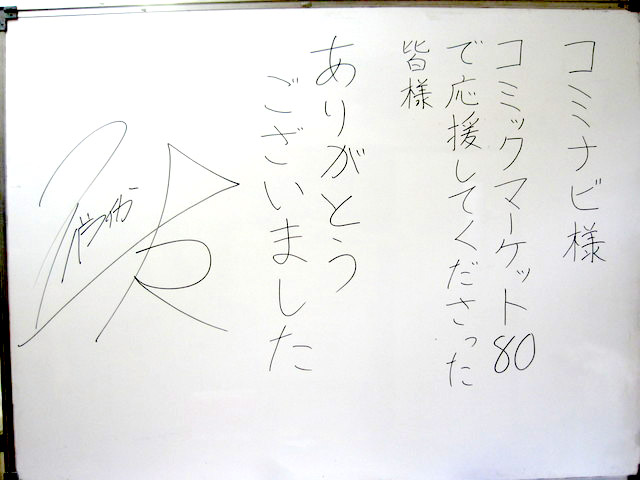 コミナビ様
コミックマーケット80
で応援してくださった
皆様
ありがとう
ございました